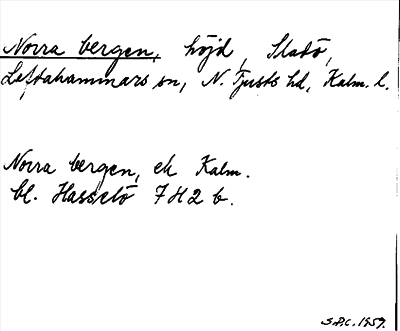 Norra bergen, höjd, Sladö,
Loftahammars sn, N. Tjusts hd, Kalm. l.
Norra bergen, ek Kalm.
bl. Hasselö 7 H 2 b.
S.P.C. 1959.